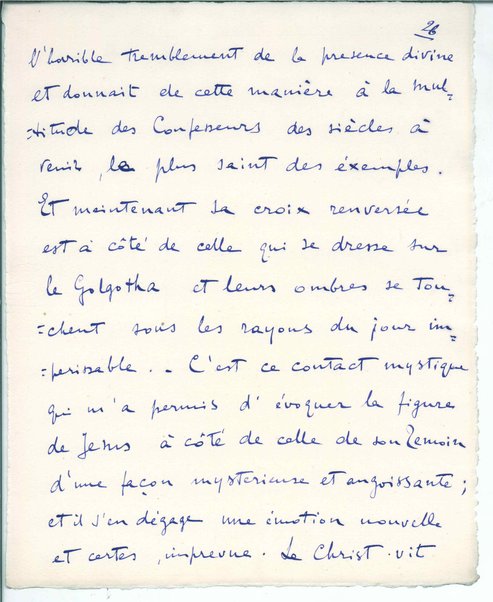 26
l'horrible tremblement de la presence divine
et donnait de cette manière à la mul=
=titude des Confesseurs des siècles à
venir, le plus saint des éxemples.
Et maintenant sa croix renversée
est à côté de celle qui se dresse sur
le Golgotha et leurs ombres se tou=
=chent sous les rayons du jour im=
=perissable. _ C'est ce contact mystique
qui m'a permis d'évoquer la figure
de Jesus à côté de celle de son Temoin
d'une façon mysterieuse et angoissante;
et il s'en dégage une émotion nouvelle
et certes, imprevue. Le Christ vit